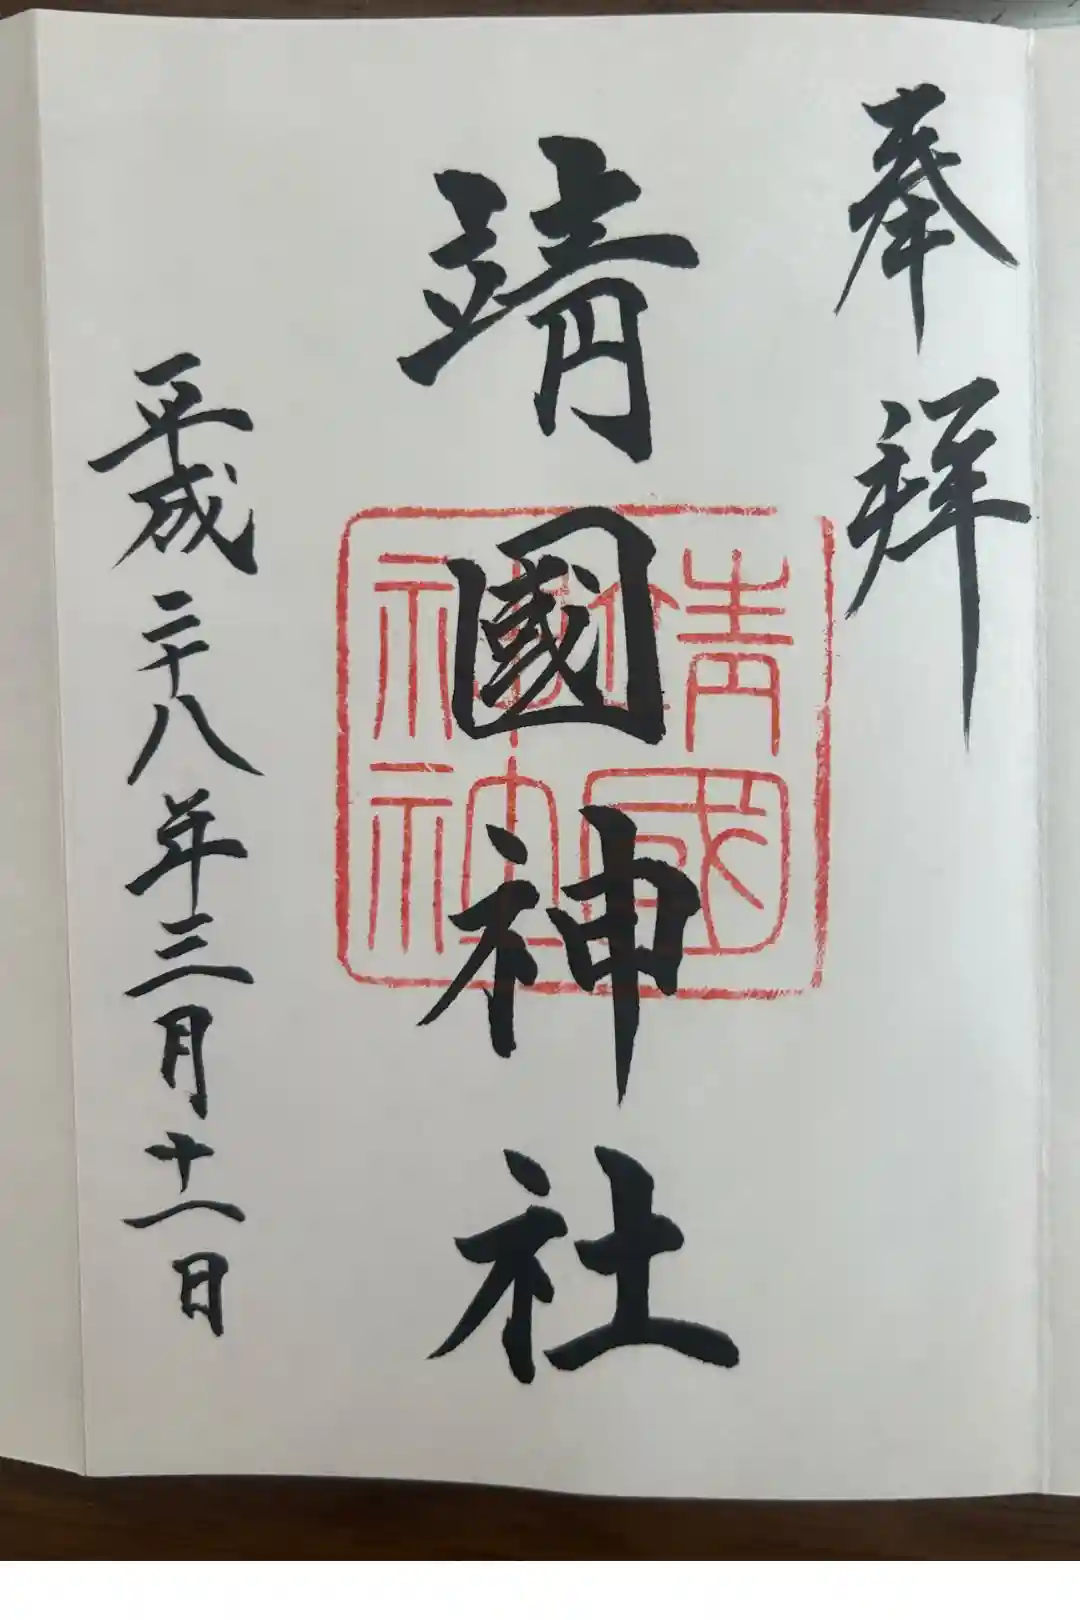 奉拝
靖國神社
靖國
神社
平成二十八年三月十一日